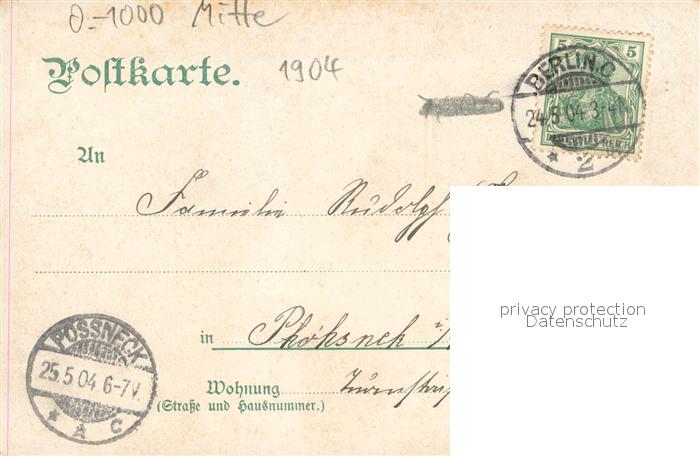 O-1000 Mitte
Postkarte. 1904
5 5
DEUTSCHES REICH
BERLIN.C.
24.5.04.3-4
* 2
An
Familie Rudolph
in Phöhsneck i/
Wohnung
(Straße und Hausnummer.)
POSSNECK
25.5.04.6-7V.
* A C
privacy protection
Datenschutz